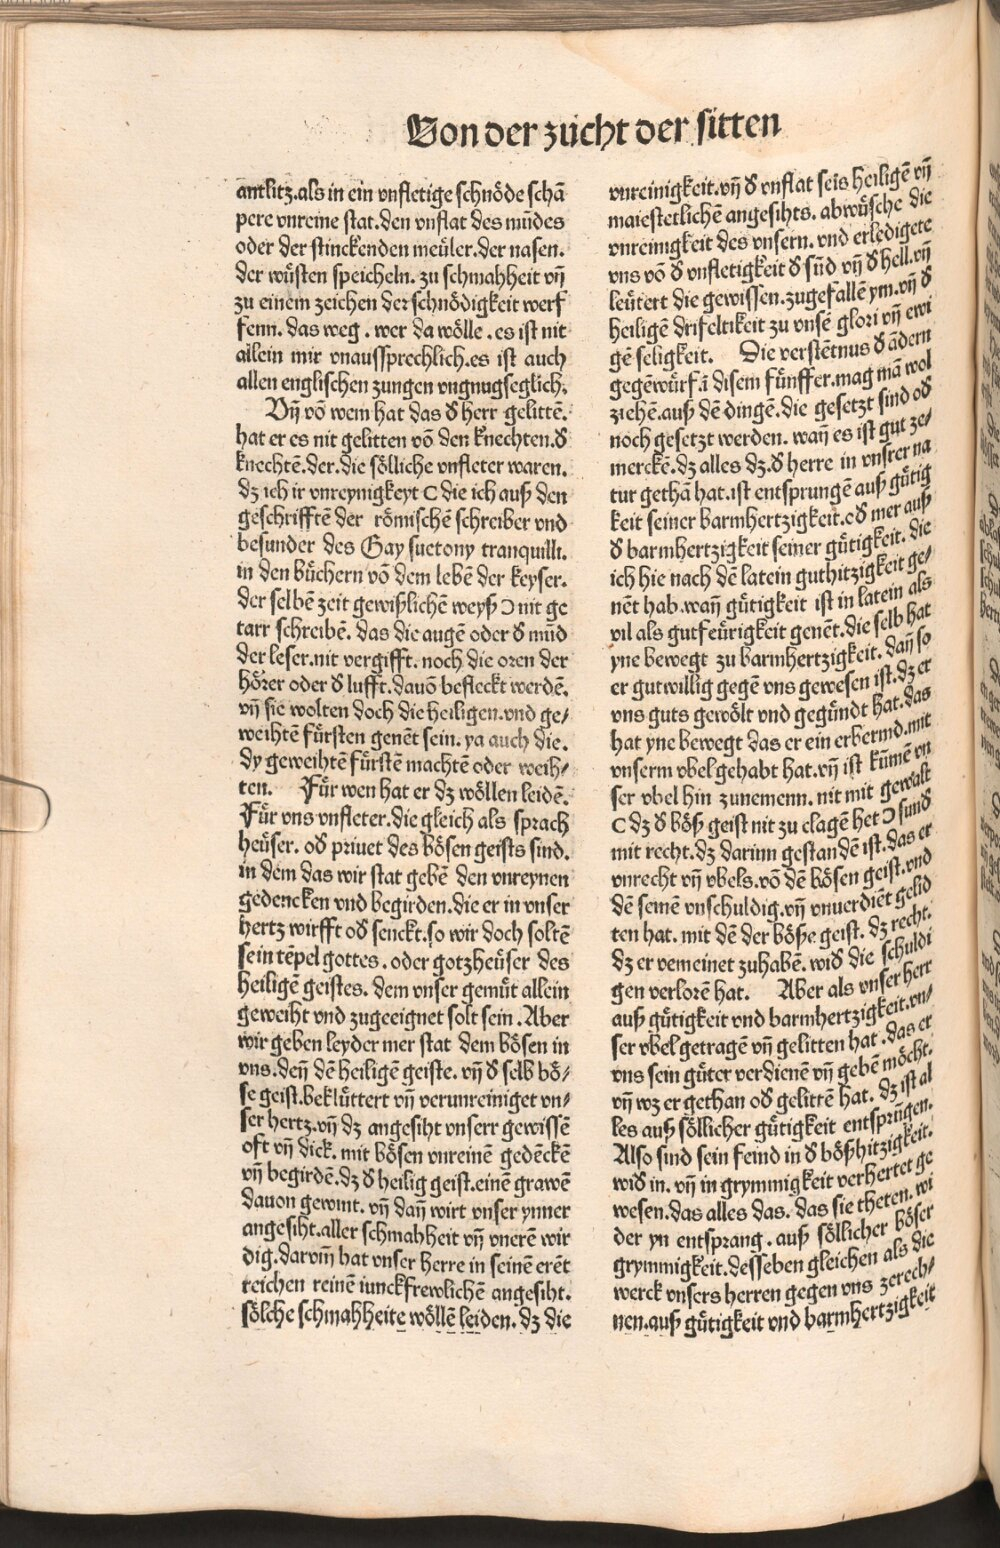 Von der zucht der sitten
antlitz.als in ein vnfletige schnöde schā
pere vnreine stat.den vnflat des mūdes
oder der stinckenden meüler.der nasen.
der wüsten speicheln. zu schmahheit vn̄
zu einem zeichen der schnödigkeit werf
fenn. das weg . wer da wölle . es ist nit
allein mir vnaussprechlich.es ist auch
allen englischen zungen vngnugseglich.
Vn̄ vō wem hat das d herr gelittē.
hat er es nit gelitten vō den knechten.d
knechtē.der.die sölliche vnfleter waren.
dz ich ir vnreynigkeyt C die ich auß den
geschrifftē der römischē schreiber vnd
besunder des Gay suetony tranquilli.
in den büchern vō dem lebē der keyser.
der selbē zeit gewißlichē weyß Ɔ nit ge
tarr schreibē. das die augē oder d mūd
der leser.nit vergifft. noch die oren der
hörer oder d lufft.dauō befleckt werdē.
vn̄ sie wolten doch die heiligen.vnd ge/
weihtē fürsten genēt sein. ya auch die.
dy geweihtē fürstē machtē oder weih/
ten. Für wen hat er dz wöllen leidē.
Für vns vnfleter.die gleich als sprach
heüser. od priuet des bösen geists sind.
in dem das wir stat gebē den vnreynen
gedencken vnd begirden.die er in vnser
hertz wirfft od senckt.so wir doch soltē
sein tēpel gottes. oder gotzheüser des
heiligē geistes. dem vnser gemüt allein
geweiht vnd zugeeignet solt sein . Aber
wir geben leyder mer stat dem bösen in
vns.den̄ dē heiligē geiste. vn̄ d selb bö/
se geist.beklüttert vn̄ verunreiniget vn/
ser hertz.vn̄ dz angesiht vnserr gewissē
oft vn̄ dick. mit bösen vnreinē gedēckē
vn̄ begirdē.dz d heilig geist.einē grawē
dauon gewint. vn̄ dan̄ wirt vnser ynner
angesiht.aller schmahheit vn̄ vnerē wir
dig.darvm̄ hat vnser herre in seinē erēt
reichen reinē iunckfrewlichē angesiht.
sölche schmahheite wöllē leiden. dz die
vnreinigkeit.vn̄ d vnflat seis heiligē vn̄
maiestetlichē angesihts. abwüsche die
vnreinigkeit des vnsern. vnd erledigete
vns vō d vnfletigkeit d sūd vn̄ d hell.vn̄
leütert die gewissen.zugefallē ym.vn̄ d
heiligē drifeltikeit zu vnsē glori vn̄ ewi
gē seligkeit. Die verstētnus d ādern
gegēwürf.ī disem fünffer.mag mā wol
ziehē.auß dē dingē.die gesetzt sind od
noch gesetzt werden. wan̄ es ist gut ze/
merckē.dz alles dz.d herre in vnsrer na
tur gethā hat.ist entsprungē auß gütig
keit seiner barmhertzigkeit.od mer auß
d barmhertzigkeit seiner gütigkeit. die
ich hie nach dē latein guthitzigkeit ge/
nēt hab.wan̄ gütigkeit ist in latein als
vil als gutfeürigkeit genēt.die selb hat
yne bewegt zu barmhertzigkeit. dan̄ so
er gutwillig gegē vns gewesen ist.dz er
vns guts gewölt vnd gegündt hat.das
hat yne bewegt das er ein erbermd.mit
vnserm vbel gehabt hat.vn̄ ist kūmē vn
ser vbel hin zunemenn. nit mit gewalt
C dz d böß geist nit zu clagē het Ɔ sund
mit recht.dz darinn gestandē ist.das er
vnrecht vn̄ vbels.vō dē bösen geist.vnd
dē seinē vnschuldig.vn̄ vnuerdiēt gelid
ten hat. mit dē der böße geist. dz recht.
dz er vemeinet zuhabē. wid die schuldi
gen verlorē hat. Aber als vnser herr
auß gütigkeit vnd barmhertzigkeit.vn/
ser vbel getragē vn̄ gelitten hat .das er
vns sein güter verdienē vn̄ gebē möcht.
vn̄ wz er gethan od gelittē hat. dz ist al
les auß söllicher gütigkeit entsprūgen.
Also sind sein feind in d bößhitzigkeit.
wid in. vn̄ in grymmigkeit verhertet ge
wesen.das alles das. das sie theten. wi
der yn entsprang . auß söllicher böser
grymmigkeit.desseben gleichen als die
werck vnsers herren gegen vns zerech/
nen.auß gütigkeit vnd barmhertzigkeit